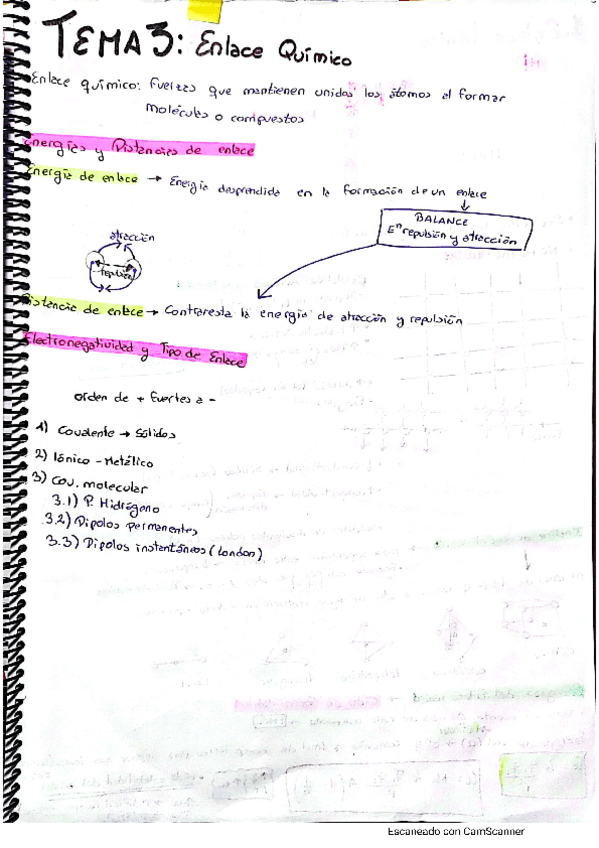 TEMA 3: Enlace Químico
Enlace químico: Fuerzas que mantienen unidos los átomos al formar
moléculas o compuestos
Energías y Distancias de enlace
Energía de enlace → Energía desprendida en la formación de un enlace
BALANCE
Eⁿ repulsión y atracción
atracción
repulsión
Distancia de enlace → Contraresta la energía de atracción y repulsión
Electronegatividad y Tipo de Enlace
orden de + fuertes a -
1) Covalente → sólidos
2) Iónico - Metálico
3) Cov. molecular
3.1) P. Hidrógeno
3.2) Dipolos permanentes
3.3) Dipolos instantáneos (London)
Escaneado con CamScanner